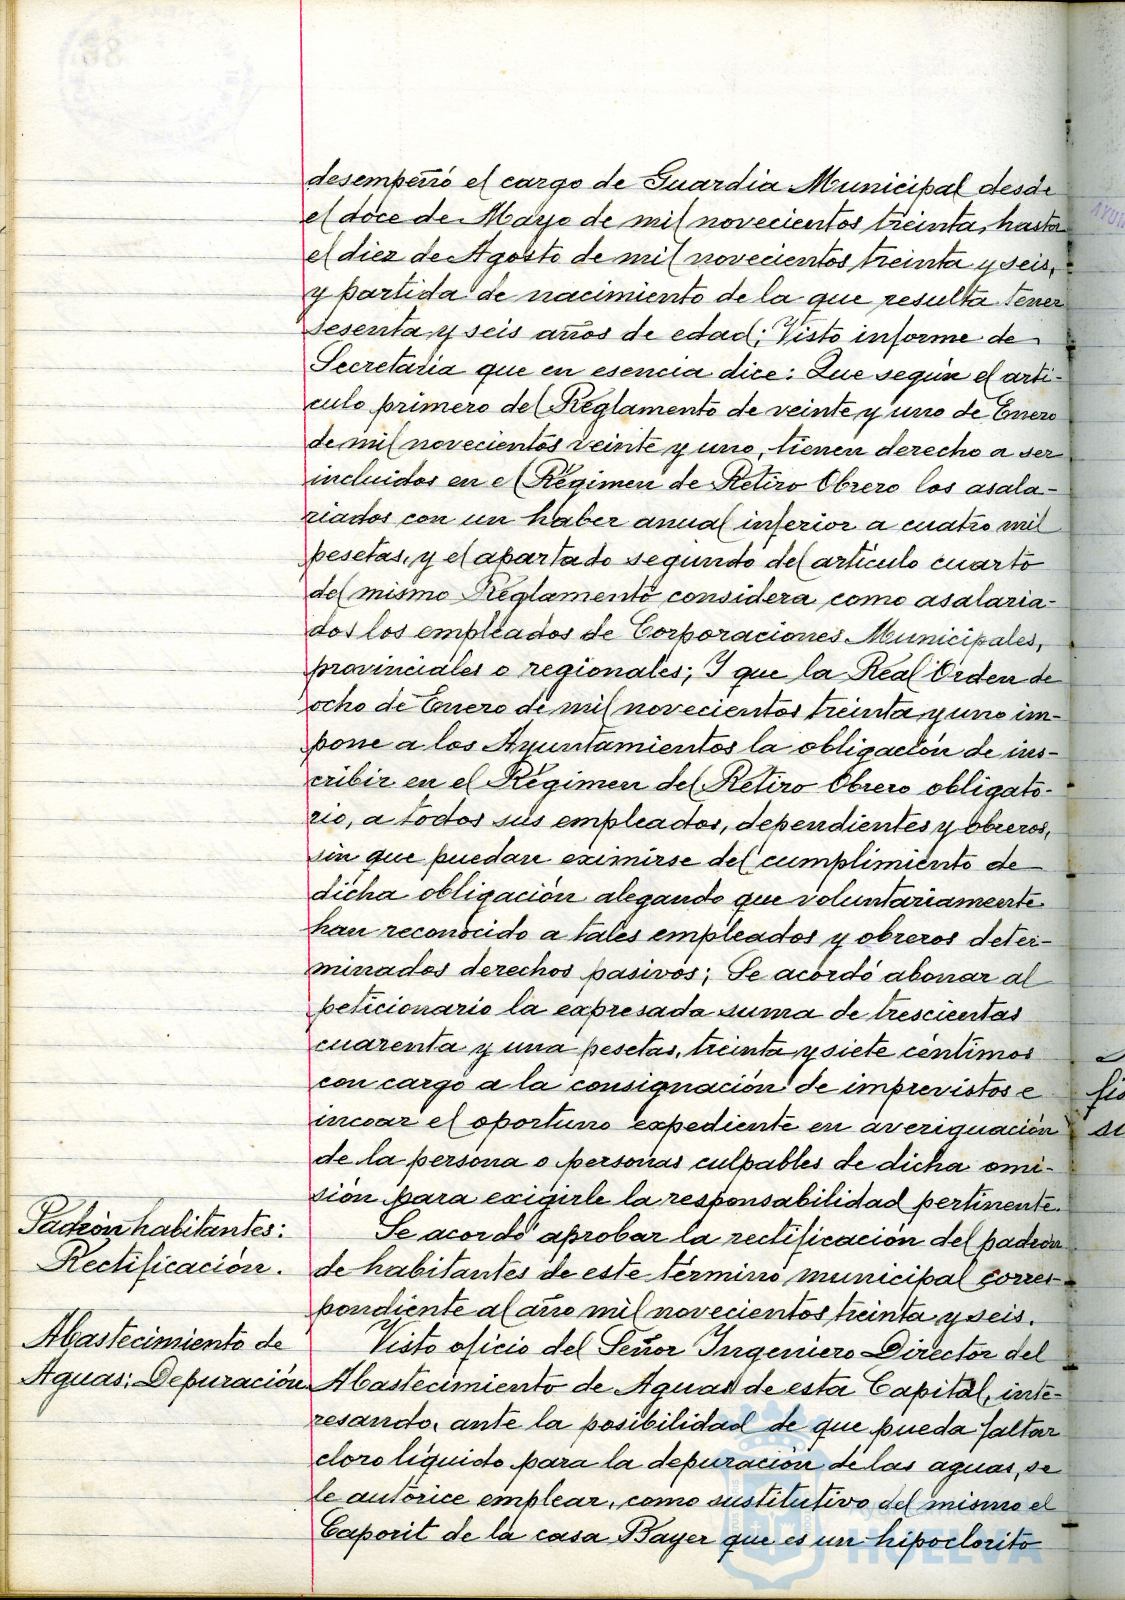 desempeñó el cargo de Guardia Municipal desde
el doce de Mayo de mil novecientos treinta, hasta
el diez de Agosto de mil novecientos treinta y seis,
y partida de nacimiento de la que resulta tener
sesenta y seis años de edad; Visto informe de
Secretaria que en esencia dice: Que según el arti-
culo primero del Reglamento de veinte y uno de Enero
de mil novecientos veinte y uno, tienen derecho a ser
incluidos en el Régimen de Retiro Obrero los asala-
riados con un haber anual inferior a cuatro mil
pesetas, y el apartado segundo del artículo cuarto
del mismo Reglamento considera como asalaria-
dos los empleados de Corporaciones Municipales,
provinciales o regionales; Y que la Real Orden de
ocho de Enero de mil novecientos treinta y uno im-
pone a los Ayuntamientos la obligación de ins-
cribir en el Régimen del Retiro Obrero obligato-
rio, a todos sus empleados, dependientes y obreros,
sin que puedan eximirse del cumplimiento de
dicha obligación alegando que voluntariamente
han reconocido a tales empleados y obreros deter-
minados derechos pasivos; Se acordó abonar al
peticionario la expresada suma de trescientas
cuarenta y una pesetas, treinta y siete céntimos
con cargo a la consignación de imprevistos e
incoar el oportuno expediente en averiguación
de la persona o personas culpables de dicha omi-
sión para exigirle la responsabilidad pertinente.
Padrón habitantes:
Rectificación.
Se acordó aprobar la rectificación del padrón
de habitantes de este término municipal corres-
pondiente al año mil novecientos treinta y seis.
Abastecimiento de
Aguas: Depuración
Visto oficio del Señor Ingeniero Director del
Abastecimiento de Aguas de esta Capital, inte-
resando, ante la posibilidad de que pueda faltar
cloro líquido para la depuración de las aguas, se
le autorice emplear, como sustitutivo del mismo el
Caporit de la casa Bayer que es un hipoclorito
Ayuntamiento de
HUELVA